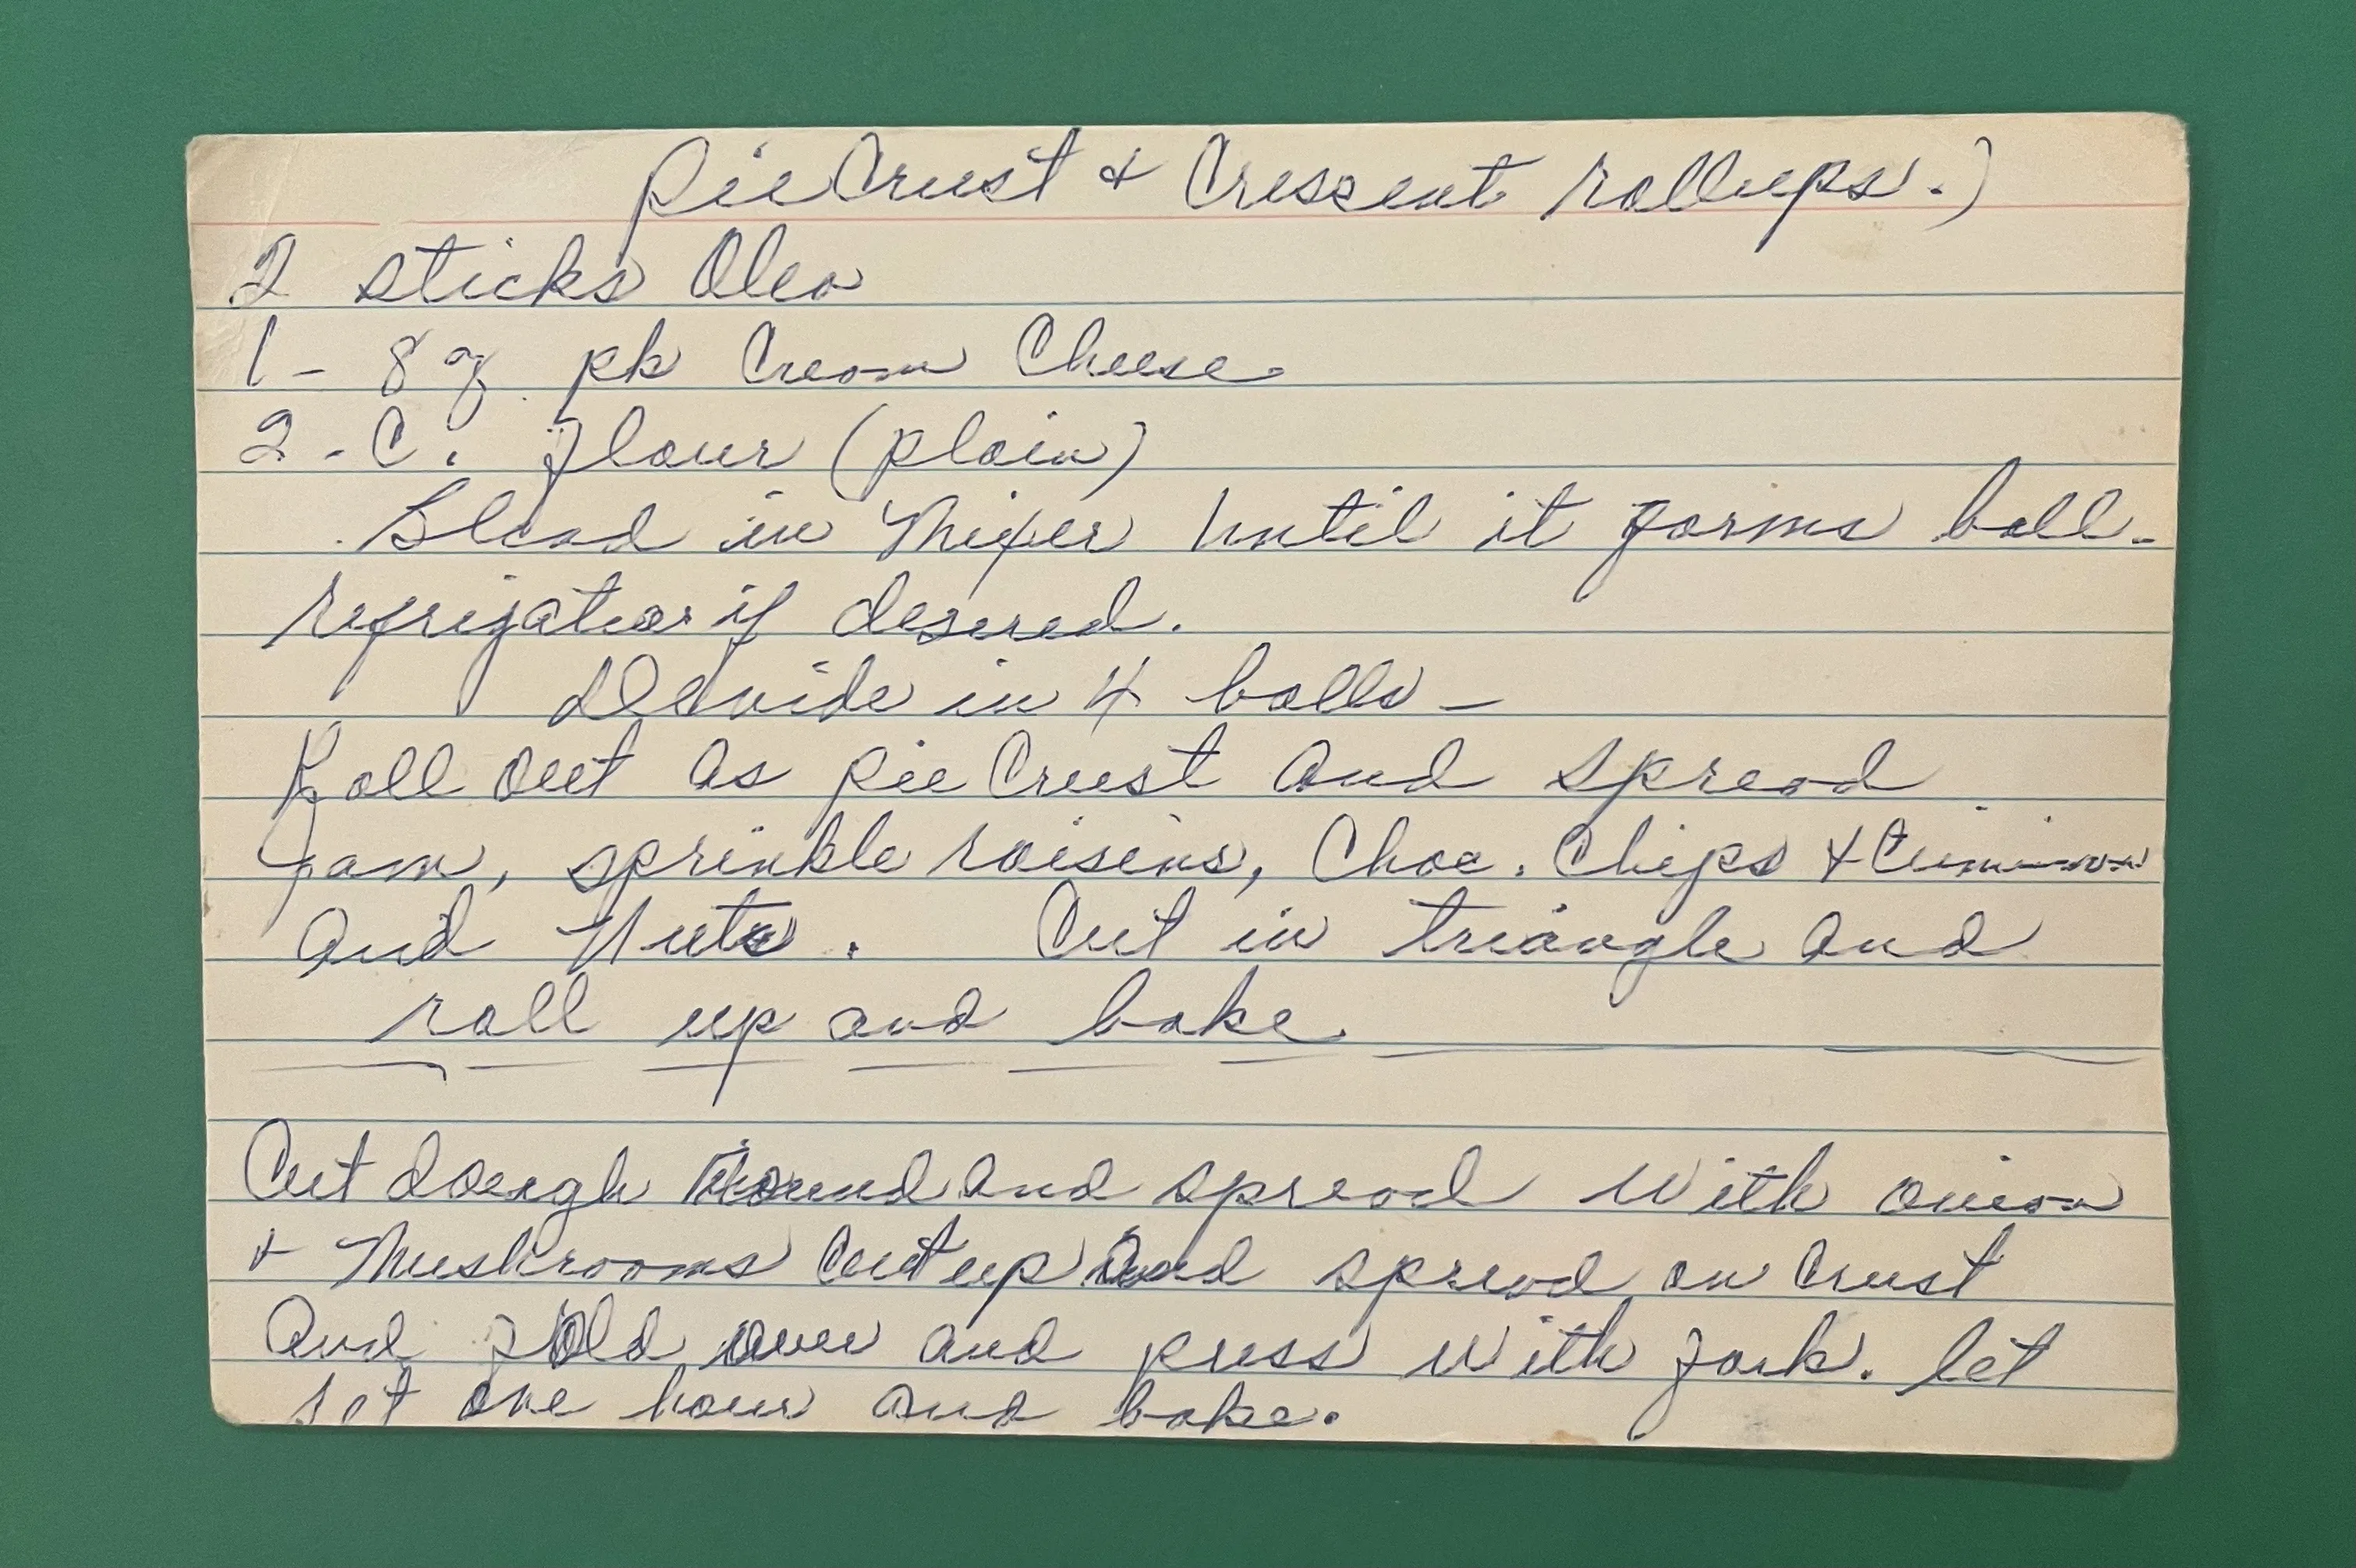 Pie Crust & Crescent rollups.)
2 sticks Oleo
1 - 8 oz pk Cream Cheese
2 - C. flour (plain)
Blend in Mixer until it forms ball.
refrigatior if desered.
Devide in 4 balls -
Roll out as pie Crust and spread
Jam, sprinkle raisins, Choc. Chips &
and Nuts. Cut in triangle and
roll up and bake.
Cut dough round and spread with onion
& Mushrooms Cut up and spread on Crust
and fold over and press with fork. let
set one hour and bake.